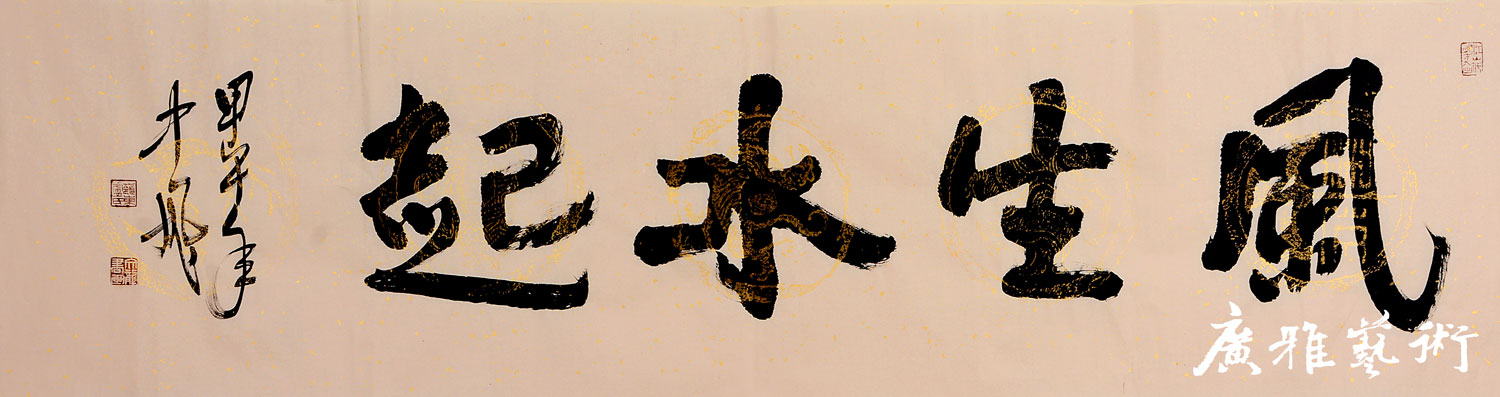 風生水起
甲午年
廣雅藝術